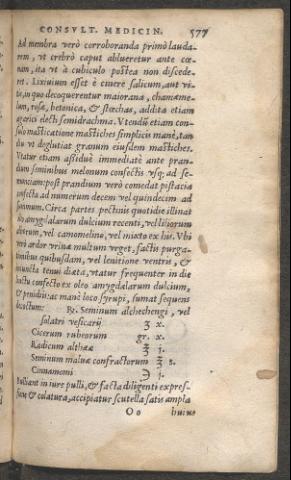 CONSVLT. MEDICIN. 577
Ad membra verò corroboranda primò lauda-
rem, vt crebrò caput ablueretur ante cœ-
nam, ita vt à cubiculo postea non discede-
ret. Lixiuium esset è cinere salicum, aut vi-
te, in quo decoquerentur maiorana, chamæme-
lum, rosæ, betonica, & stœchas, addita etiam
agarici electi semidrachma. Vtendū etiam con-
sulo masticatione mastiches simplicis manè, tan
du vt deglutiat granum eiusdem mastiches.
Vtatur etiam assiduè immediatè ante pran-
dium seminibus melonum confectis vsq; ad se-
munciam: post prandium verò comedat pistacia
confecta ad numerum decem vel quindecim ad
summum. Circa partes pectinis quotidie illinat
amygdalarum dulcium recenti, vel liliorum
alborum, vel camomelino, vel mixto ex his. Vbi
verò ardor vrinæ multum vrget, factis purga-
tionibus quibusdam, vel lenitione ventris, &
iniuncta tenui diæta, vtatur frequenter in die
lactu confecto ex oleo amygdalarum dulcium,
& penidijs: ac manè loco syrupi, sumat sequens
decoctum: ℞. Seminum alchechengi, vel
solatri vesicarij ʒ x.
Cicerum rubeorum gr. x.
Radicum altheæ ℥ j.
Seminum maluæ confractorum ℥ s.
Cinnamomi ℈ j.
Bulliant in iure pulli, & facta diligenti expres-
sione & colatura, accipiatur scutella satis ampla
Oo huius